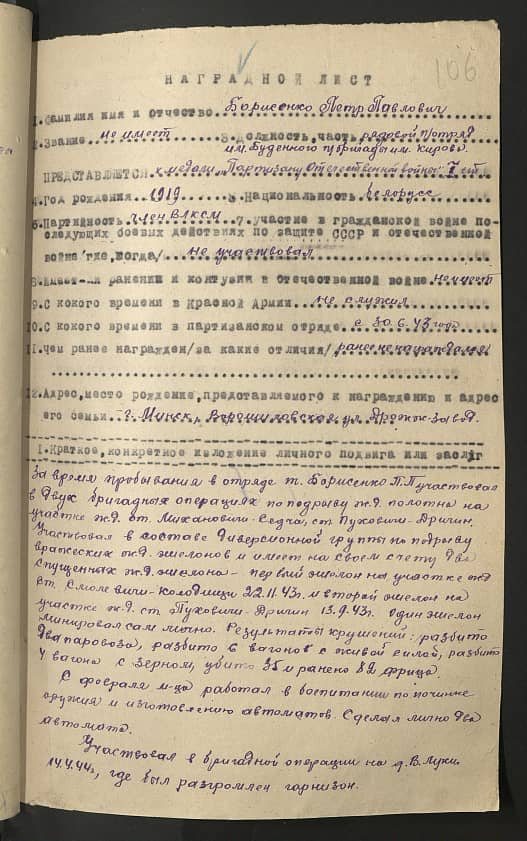 106
НАГРАДНОЙ ЛИСТ
1. Фамилия имя и отчество Борисенко Петр Павлович
2. Звание не имеет 3. Должность, часть рядовой п/отряд
им. Буденного п/бригады им. Кирова.
ПРЕДСТАВЛЯЕТСЯ к медали "Партизану Отечественной войны" I ст.
4. Год рождения 1919 5. Национальность белорусс
6. Партийность член ВЛКСМ 7. участие в гражданской войне по-
следующих боевых действиях по защите СССР и отечественной
войне /где, когда/ не участвовал
8. Имеет-ли ранении и контузии в Отечественной войне не имеет
9. С кокого времени в Красной Армии не служил
10. С кокого времени в партизанском отряде с 30.6.43 года
11. чем ранее награжден /за какие отличия/ ранее не награждался
12. Адрес, место рождение, представляемого к награждению и адрес
его семьи г. Минск, Ворошиловская ул. Дрожж-завод.
1. Краткое, конкретное изложение личного подвига или заслуг
За время пребывания в отряде т. Борисенко П.П участвовал
в двух бригадных операциях по подрыву ж.д. полотна на
участке ж.д. ст. Михановичи-Седча, ст. Пуховичи-Дричин.
Участвовал в составе диверсионной группы по подрыву
вражеских ж.д. эшелонов и имеет на своем счету два
спущенных ж.д. эшелона - первый эшелон на участке ж.д
ст. Смолевичи-Колодищи 22.11.43г. и второй эшелон на
участке ж.д. ст. Пуховичи-Дричин 13.9.43г. Один эшелон
минировал сам лично. Результаты крушений: разбито
два паровоза, разбито 6 вагонов с живой силой, разбито
4 вагона с зерном, убито 35 и ранено 82 фрица.
С февраля м-ца работал в по починке
оружия и изготовлению автоматов. Сделал лично два
автомата.
Участвовал в бригадной операции на д. В. Луки
14.4.44г, где был разгромлен гарнизон.